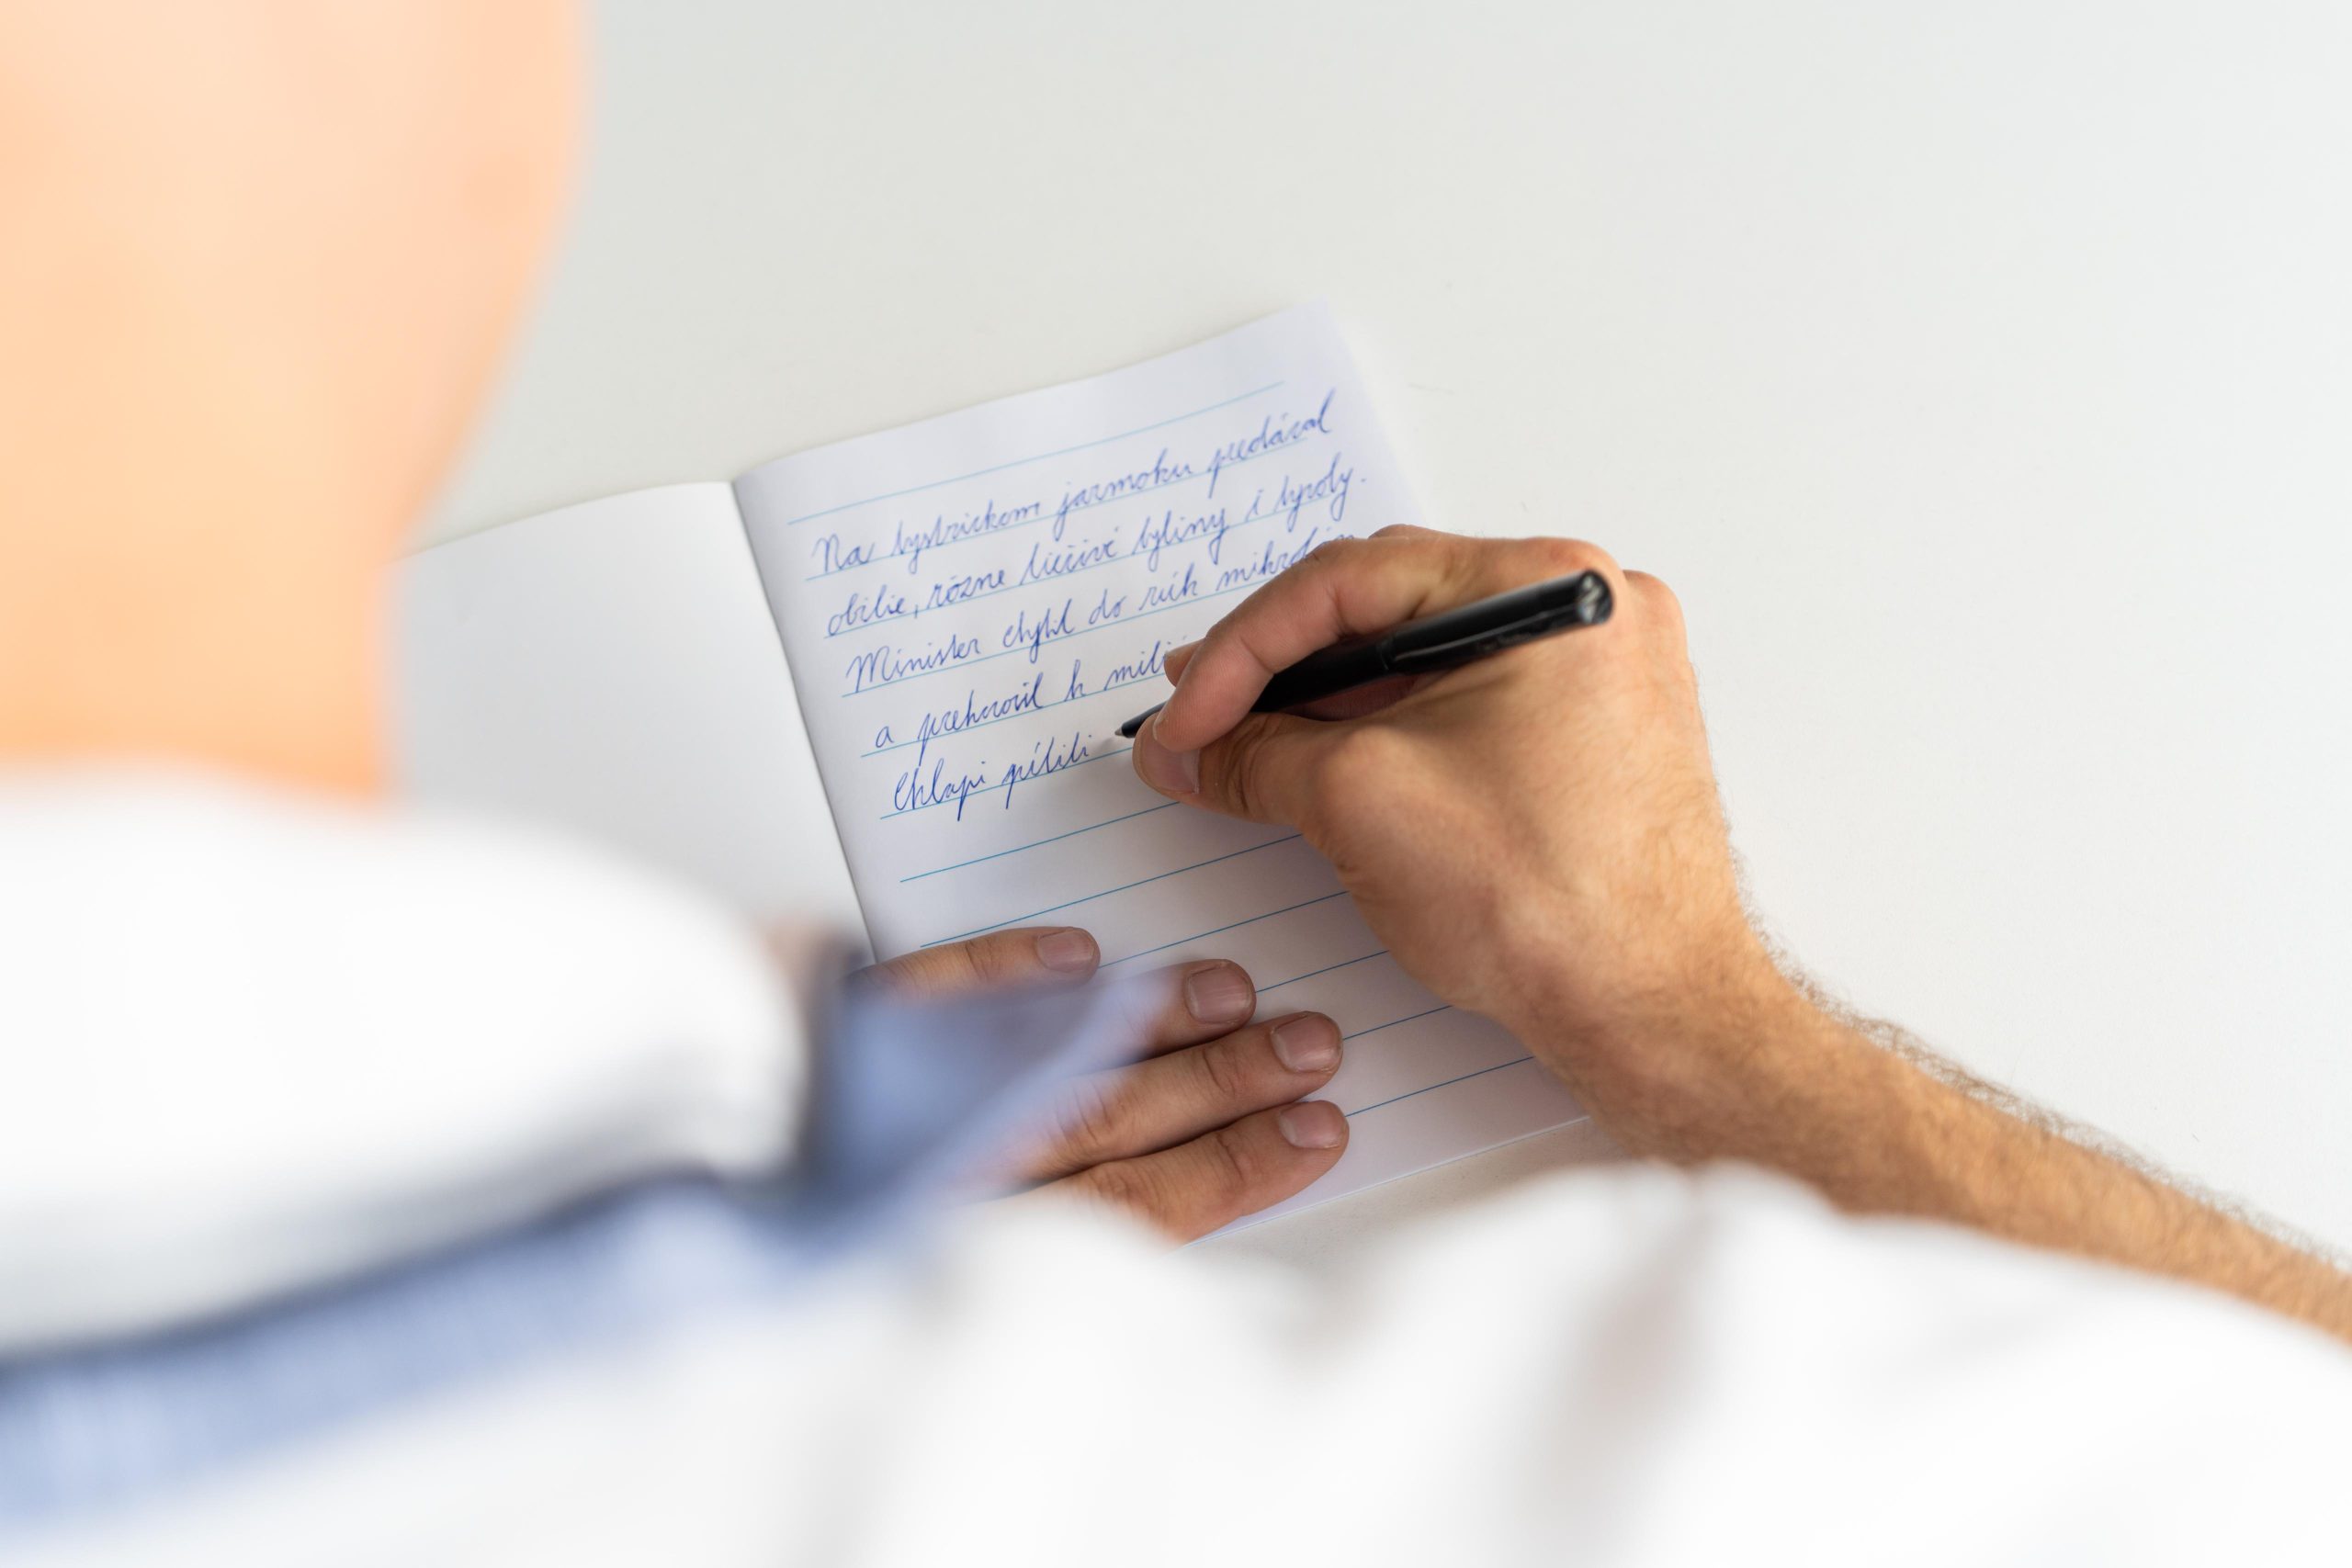 Na bystrickom jarmoku predával
obilie, rôzne liečivé byliny i syroly.
Minister chytil do rúk
a prehovoril k
Chlapi pílili